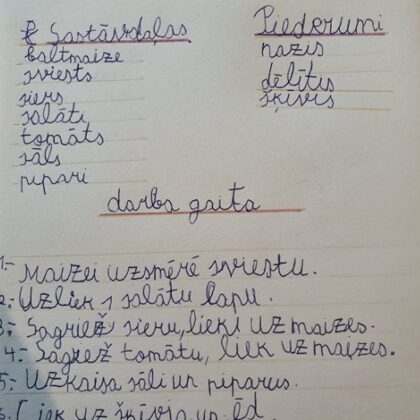 Sastāvdaļas
baltmaize
sviests
siers
salāti
tomāts
sāls
pipari
Piederumi
nazis
dēlītis
šķīvis
darba gaita
1.- Maizei uzsmērē sviestu.
2.- Uzliek 1 salātu lapu.
3.- Sagriež sieru, liek uz maizes.
4.- Sagriež tomātu, liek uz maizes.
5.- Uzkaisa sāli un piparus.
6. Liek uz šķīvja un ēd.